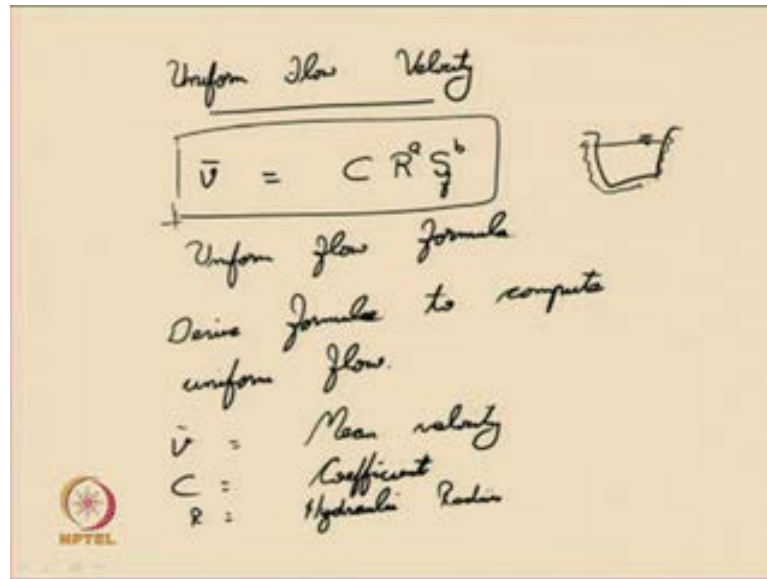 Uniform Flow Velocity
v̄ = C R^a S_f^b
Uniform Flow Formula
Derive Formulae to compute
uniform flow.
v̄ = Mean velocity
C = Coefficient
R = Hydraulic Radius
NPTEL